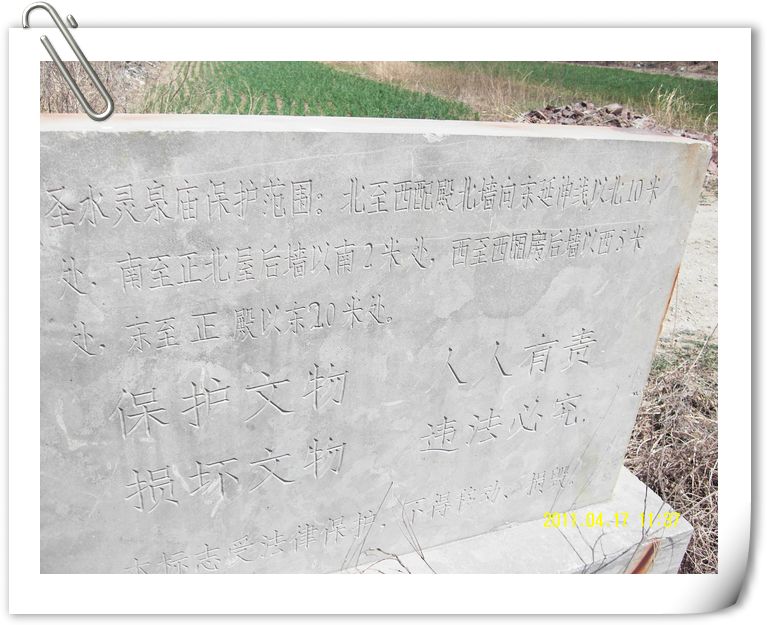 圣水灵泉庙保护范围：北至西配殿北墙向东延伸线以北10米
处．南至正北屋后墙以南2米处．西至西厢房后墙以西5米
处．东至正殿以东20米处。
保护文物 人人有责
损坏文物 违法必究.
本标志受法律保护．不得移动、损毁！
2011.04.17 11:37